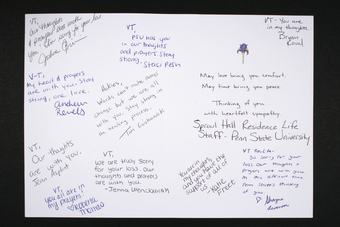 VT,
Our thoughts
& prayers are with
VT,
PSU has you
in our thoughts
and prayers. Stay
strong.
- Staci Pesh
VT - You are
in my thoughts
Bryan
V-T,
my heart & prayers
are with you. Stay
strong, are love.
Andrew
Revels
Hokies,
Words can't make things
change but we are all
with you, stay strong in
the healing process.
Tim
May love bring you comfort.
May time bring you peace
Thinking of you
with heartfelt sympathy.
Sproul Hall Residence Life
Staff - Penn State University
VT.
Our thoughts
are with you.
VT,
We are truly sorry
for your loss. Our
thoughts and prayers
are with you.
- Jenna
You're in my
thoughts and
you have the
support of all of
us
Katie
Street
VT
So sorry for your
loss. Our thoughts &
prayers are with you
in this difficult time.
Penn State's thinking of
you.
VT
you all are in
my prayers